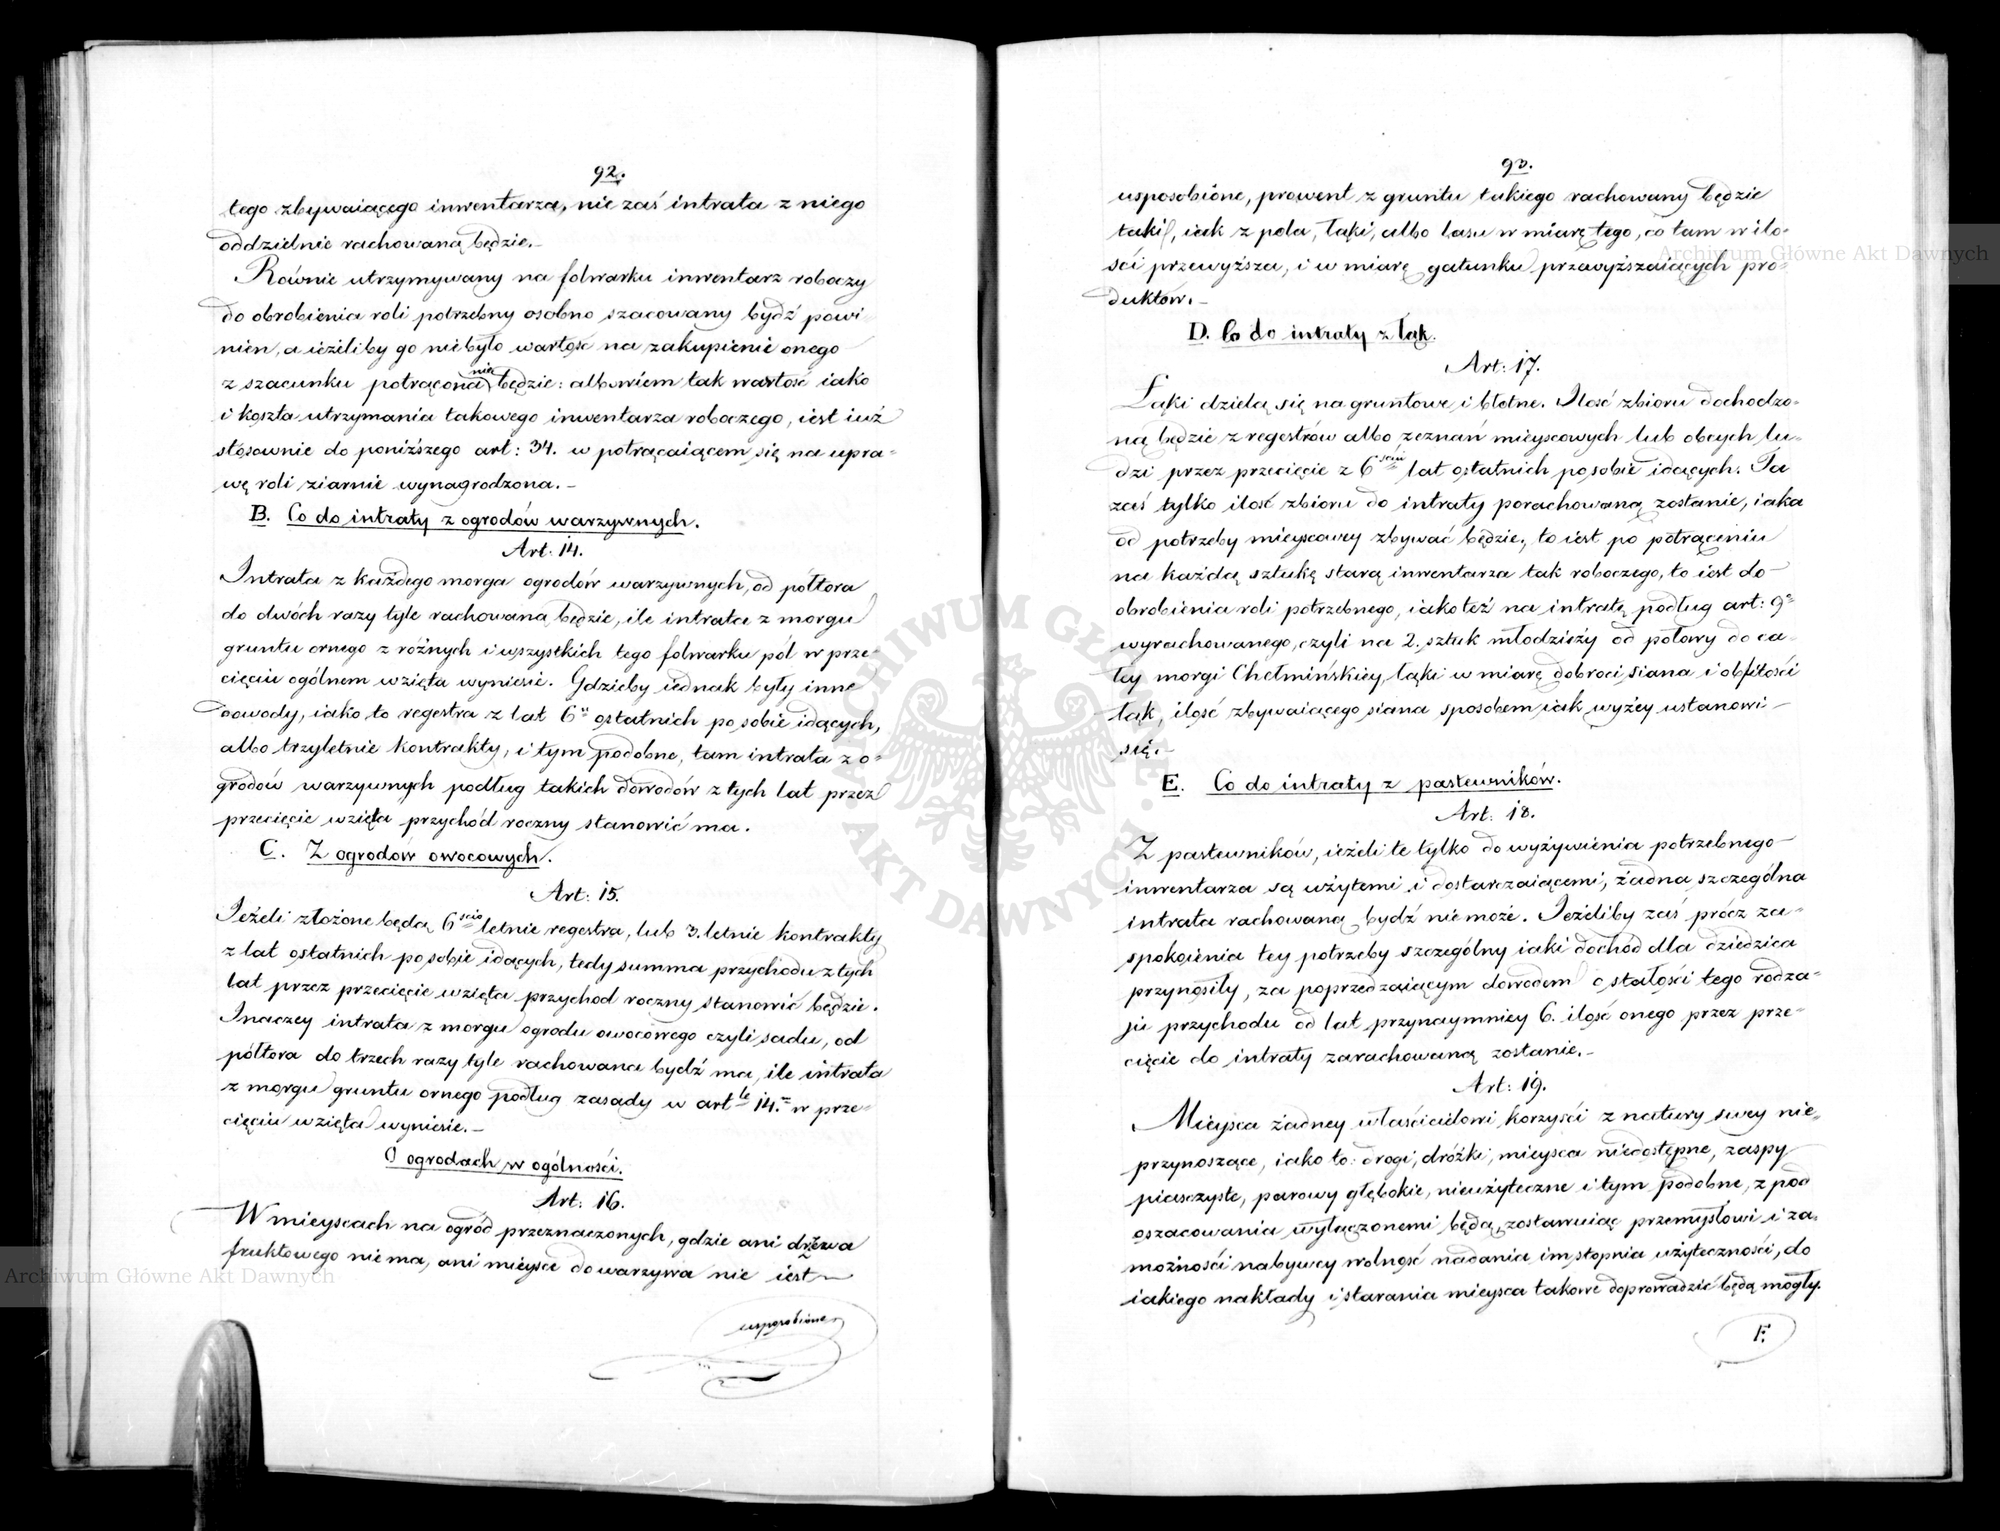 92.
tego zbywaiącego inwentarza, nie zaś intrata z niego
oddzielnie rachowaną będzie.-
Równie utrzymywany na folwarku inwentarz roboczy
do obrobienia roli potrzebny osobno szacowany bydź powi-
nien, a ieżeliby go nie było wartość na zakupienie onego
z szacunku potrącona nie będzie: albowiem tak wartość iako
i koszta utrzymania takowego inwentarza roboczego, iest iuż
stosownie do poniższego art: 34. w potrącaiącem się na upra-
wę roli ziarnie wynagrodzona.-
B. Co do intraty z ogrodów warzywnych.
Art: 14.
Intrata z każdego morga ogrodów warzywnych, od półtora
do dwóch razy tyle rachowaną będzie, ile intrata z morgu
gruntu ornego z różnych i wszystkich tego folwarku pól w prze-
cięciu ogólnem wzięta wyniesie. Gdzieby iednak były inne
dowody, iako to regestra z lat 6u ostatnich po sobie idących,
albo trzyletnie kontrakty, i tym podobne, tam intrata z o-
grodów warzywnych podług takich dowodów z tych lat przez
przecięcie wzięta przychód roczny stanowić ma.
C. Z ogrodów owocowych.
Art: 15.
Jeżeli złożone będą 6scio letnie regestra, lub 3. letnie kontrakty
z lat ostatnich po sobie idących, tedy summa przychodu z tych
lat przez przecięcie wzięta przychod roczny stanowić będzie.
Inaczey intrata z morgu ogrodu owocowego czyli sadu, od
półtora do trzech razy tyle rachowana bydź ma, ile intrata
z morgu gruntu ornego podług zasady w artle 14. w prze-
cięciu wzięta wyniesie.-
O ogrodach w ogólności.
Art: 16.
W mieyscach na ogród przeznaczonych, gdzie ani drzewa
fruktowego nie ma, ani mieysce do warzywa nie iest
usposobione
93.
usposobione, prowent z gruntu takiego rachowany będzie
taki, iak z pola, łąki, albo lasu w miarę tego, co tam w ilo-
ści przewyższa, i w miarę gatunku przewyższaiących pro-
duktów.-
D. Co do intraty z łąk.
Art: 17.
Łąki dzielą się na gruntowe i błotne. Ilość zbioru dochodzo-
ną będzie z regestrów albo zeznań mieyscowych lub obcych lu-
dzi przez przecięcie z 6ściu lat ostatnich po sobie idących. Ta
zaś tylko ilość zbioru do intraty porachowaną zostanie, iaka
od potrzeby mieyscowey zbywać będzie, to iest po potrąceniu
na każdą sztukę starą inwentarza tak roboczego, to iest do
obrobienia roli potrzebnego, iako też na intratę podług art: 9o
wyrachowanego, czyli na 2. sztuk młodzieży od połowy do ca-
łey morgi Chełmińskiey łąki w miarę dobroci siana i obfitości
łąk, ilość zbywaiącego siana sposobem iak wyżey ustanowi
się.-
E. Co do intraty z pastewników.
Art: 18.
Z pastewników, ieżeli te tylko do wyżywienia potrzebnego
inwentarza są użytemi i dostarczaiącemi, żadna szczególna
intrata rachowaną bydź nie może. Jeżeliby zaś prócz za-
spokoienia tey potrzeby szczególny iaki dochód dla dziedzica
przynosiły, za poprzedzaiącym dowodem o stałości tego rodza-
ju przychodu od lat przynaymniey 6. ilość onego przez prze-
cięcie do intraty zarachowaną zostanie.-
Art: 19.
Mieysca żadney właścicielowi korzyści z natury swey nie-
przynoszące, iako to: drogi, dróżki, mieysca niedostępne, zaspy
piasczyste, parowy głębokie, nieużyteczne i tym podobne, z pod
oszacowania wyłączonemi będą, zostawuiąc przemysłowi i za-
możności nabywcy wolność nadania im stopnia użyteczności, do
iakiego nakłady i starania mieysca takowe doprowadzić będą mogły.
F.
Archiwum Główne Akt Dawnych
Archiwum Główne Akt Dawnych
ARCHIWUM GŁÓWNE AKT DAWNYCH